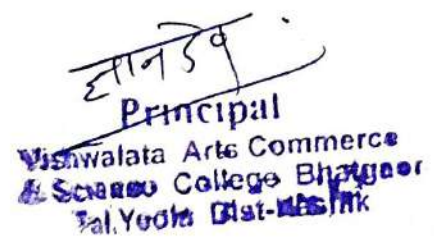 ज्ञानदेव
Principal
Vishwalata Arts Commerce
& Science College Bhatgaor
Tal,Yeola Dist-Nashik